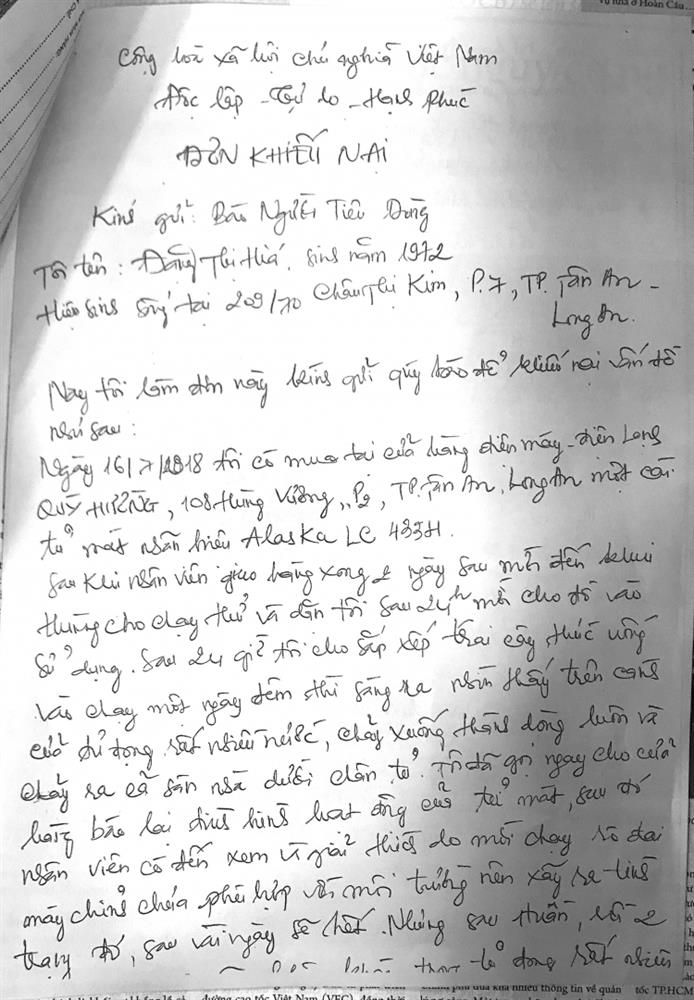 vụ nhà ở Hoàn Cầu...
Cộng hoà xã hội chủ nghĩa Việt Nam
Độc lập - Tự do - Hạnh phúc
ĐƠN KHIẾU NẠI
Kính gửi: Báo Người Tiêu Dùng
Tôi tên: Đặng Thị Hiá, sinh năm 1972
Hiện sinh sống tại 209/70 Châu Thị Kim, P.7, TP. Tân An -
Long An.
Nay tôi làm đơn này kính gửi quý báo để khiếu nại vấn đề
như sau:
Ngày 16/7/2018 tôi có mua tại cửa hàng điện máy - điện lạnh
QUÝ HƯỜNG, 108 Hùng Vương, P2, TP. Tân An, Long An một cái
tủ mát nhãn hiệu Alaska LC 433H.
Sau khi nhân viên giao hàng xong 2 ngày sau mới đến khui
thùng cho chạy thử và dặn tôi sau 24h mới cho đồ vào
sử dụng. Sau 24 giờ tôi cho sắp xếp trái cây thức uống
vào chạy một ngày đêm thì sáng ra nhìn thấy trên cánh
cửa tủ đọng rất nhiều nước, chảy xuống thành dòng luôn và
chảy ra cả sàn nhà dưới chân tủ. Tôi đã gọi ngay cho cửa
hàng báo lại tình hình hoạt động của tủ mát, sau đó
nhân viên có đến xem và giải thích do mới chạy rô đai
máy chỉnh chưa phù hợp với môi trường nên xảy ra tình
trạng đó, sau vài ngày sẽ hết. Nhưng sau tuần, rồi 2
tủ đọng rất nhiều
đường cao tốc Việt Nam (VEC)
phanh phui quá khá nhiều thông tin về quán
tốc TP.HCM